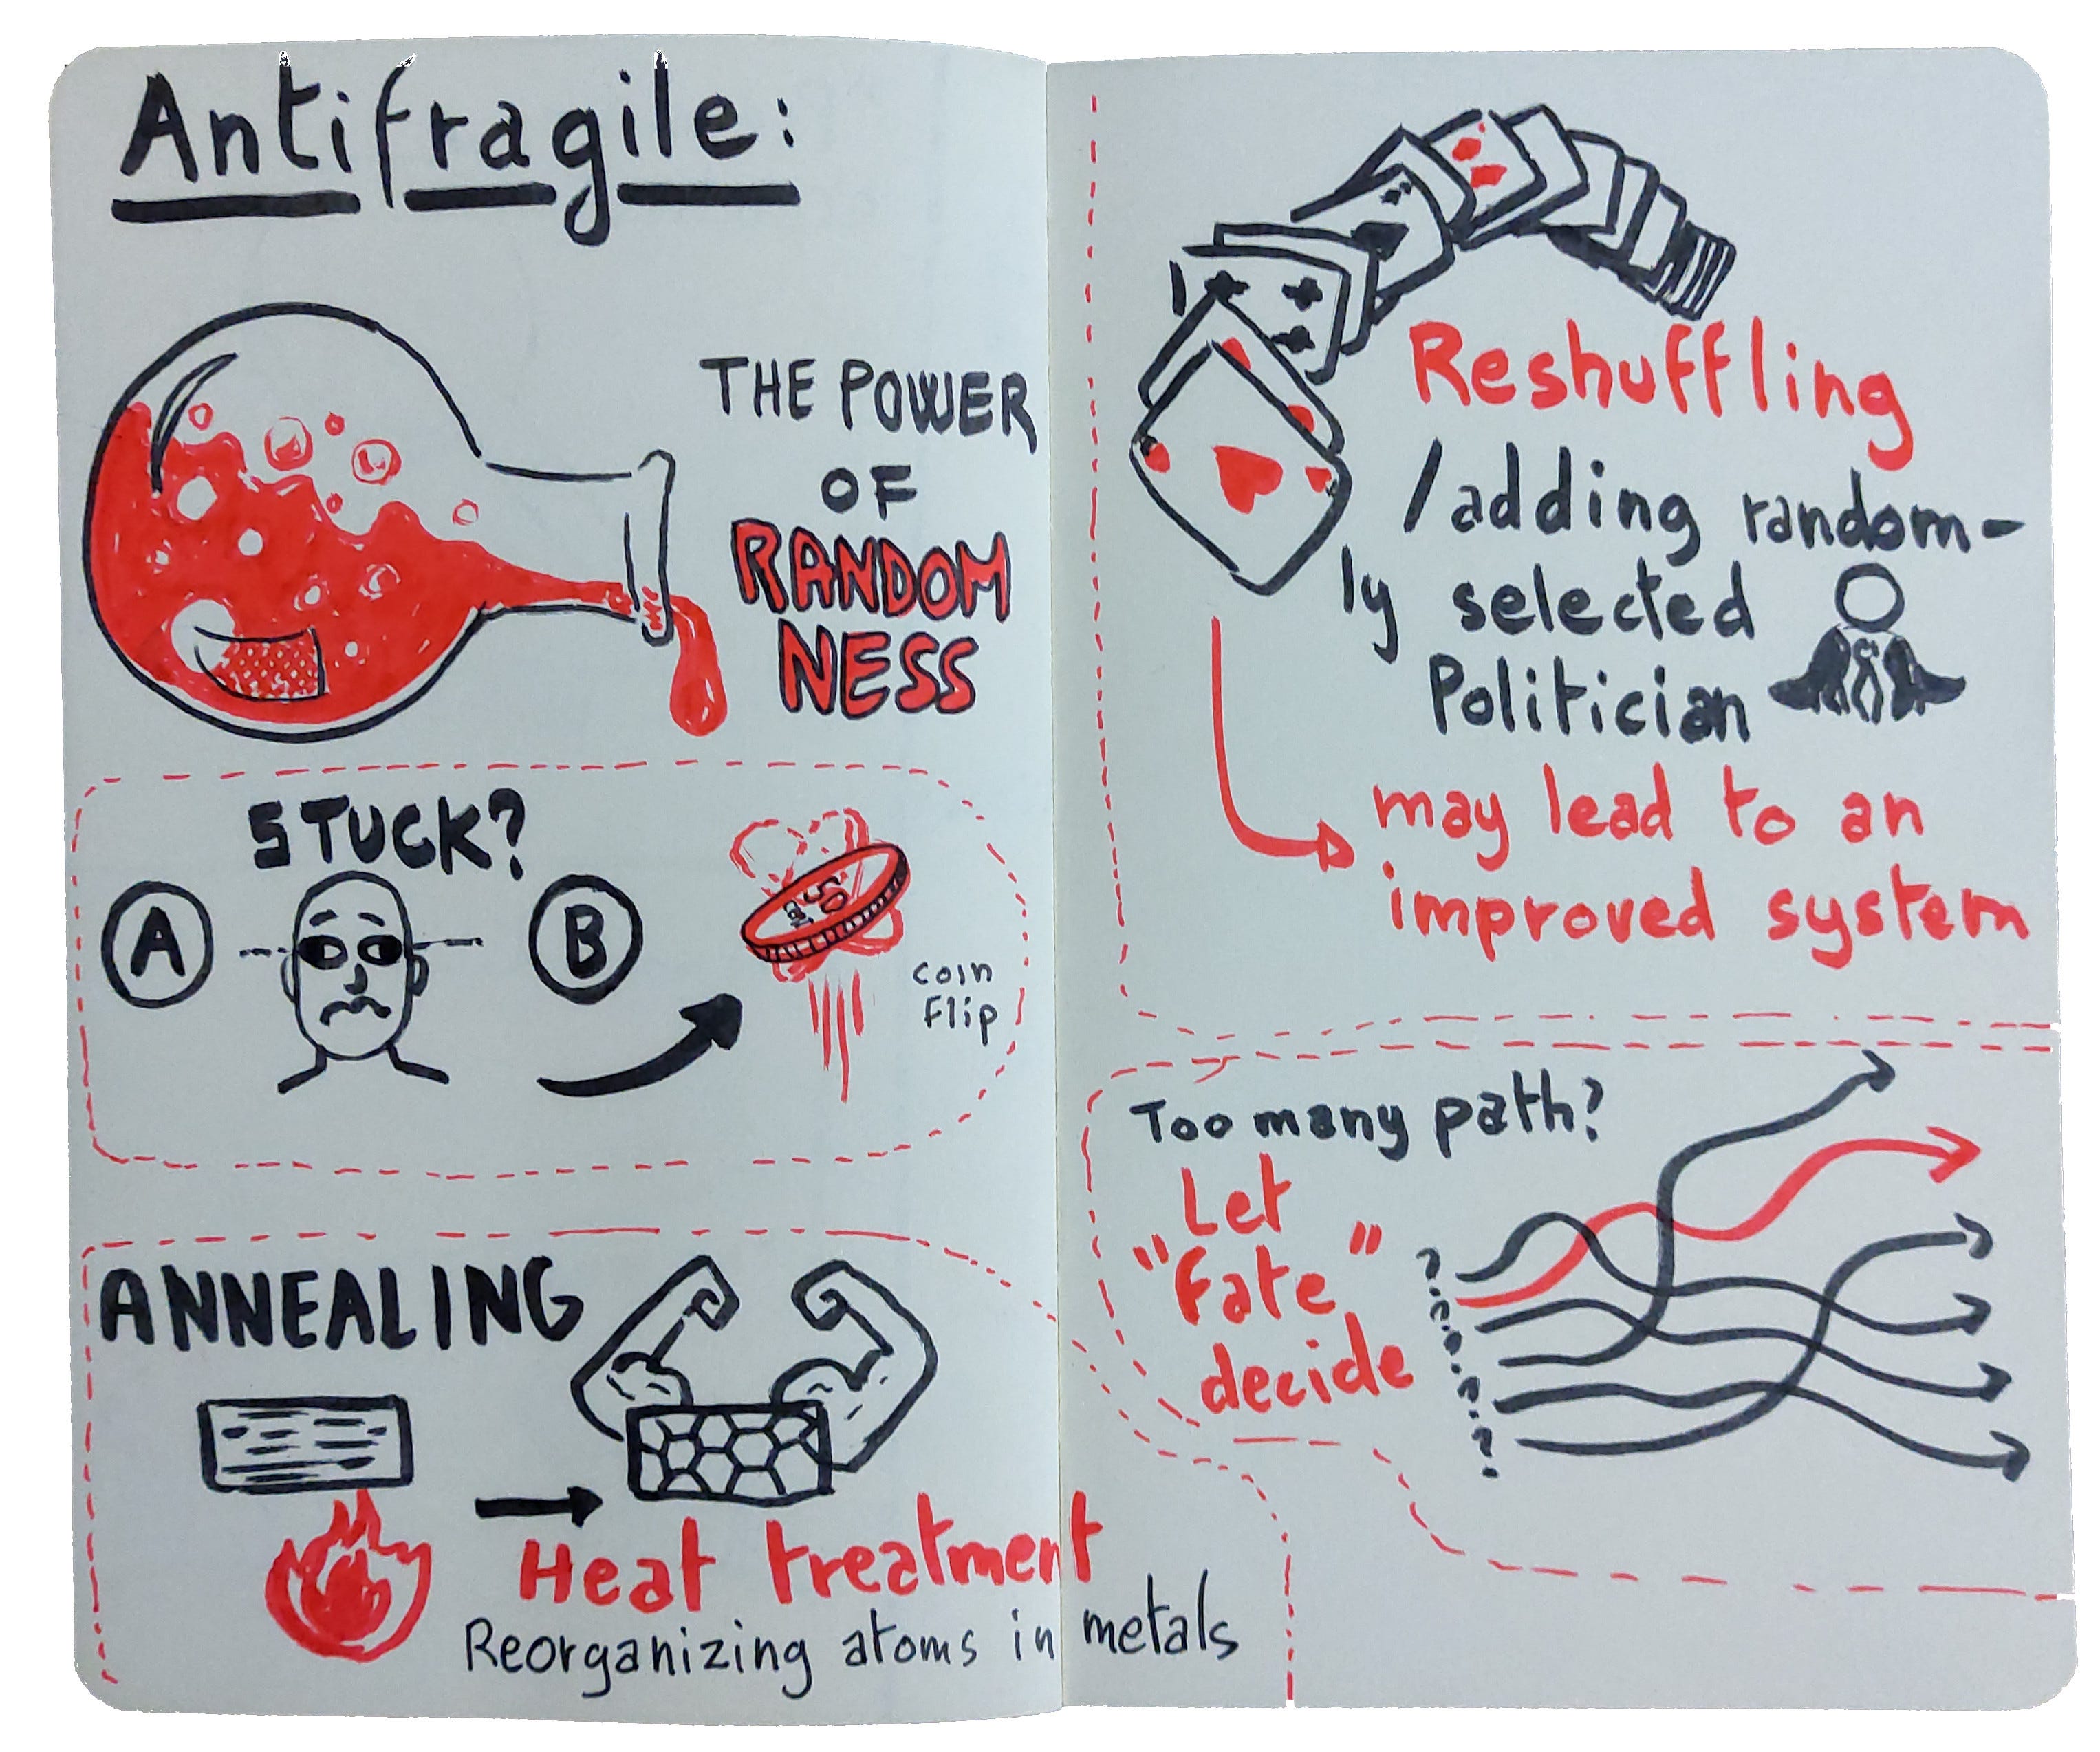 Antifragile:
THE POWER
OF
RANDOM
NESS
STUCK?
A
B
coin
flip
ANNEALING
Heat treatment
Reorganizing atoms in metals
Reshuffling
/adding random-
ly selected
Politician
may lead to an
improved system
Too many path?
Let
"fate"
decide